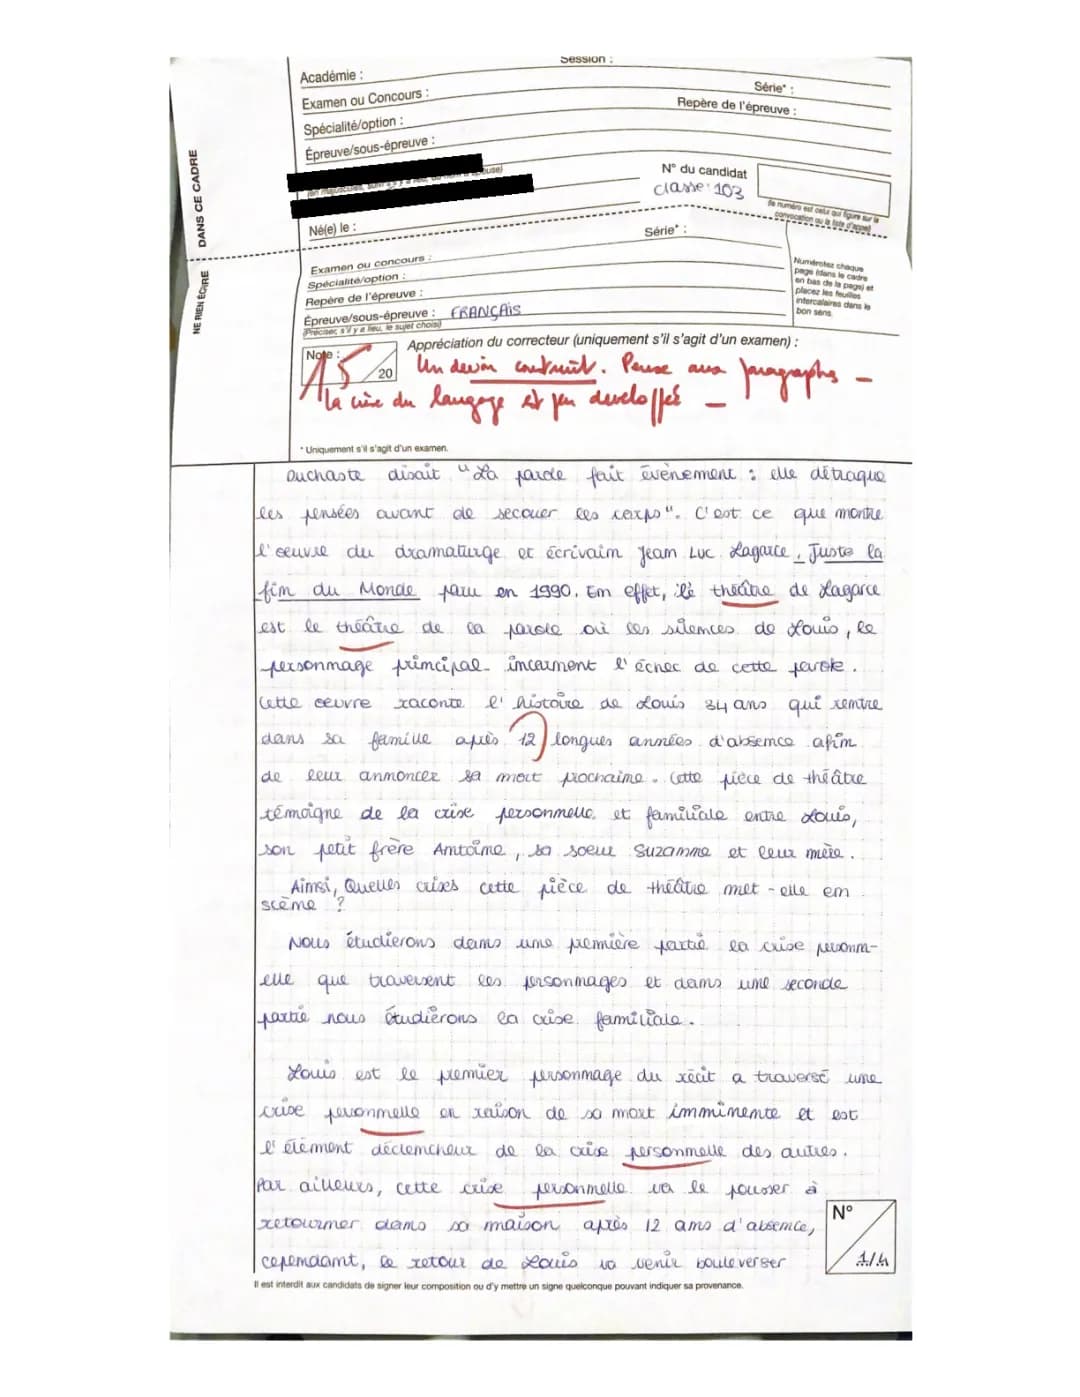 Session :
Académie :
Série* :
Examen ou Concours :
Repère de l'épreuve :
Spécialité/option :
Épreuve/sous-épreuve :
DANS CE CADRE
N° du candidat
classe : 103
(le numéro est celui qui figure sur la
convocation ou la liste d'appel)
Né(e) le :
Série* :
NE RIEN ÉCRIRE
Examen ou concours :
Spécialité/option :
Repère de l'épreuve :
Épreuve/sous-épreuve : FRANÇAIS
(Préciser, s'il y a lieu, le sujet choisi)
Numérotez chaque
page (dans le cadre
en bas de la page) et
placez les feuilles
intercalaires dans le
bon sens.
Note :
15
20
Appréciation du correcteur (uniquement s'il s'agit d'un examen) :
Un devoir construit. Pense aux paragraphes -
la crise du langage est peu développée -
* Uniquement s'il s'agit d'un examen.
Duchaste disait "La parole fait évènement : elle détraque
les pensées avant de secouer les corps". C'est ce que montre
l'oeuvre du dramaturge et écrivain Jean Luc Lagarce, Juste la
fin du Monde paru en 1990. En effet, le théâtre de Lagarce
est le théâtre de la parole où les silences de Louis, le
personnage principal incarnent l'échec de cette parole.
Cette oeuvre raconte l'histoire de Louis 34 ans qui rentre
dans sa famille après 12 longues années d'absence afin
de leur annoncer sa mort prochaine. Cette pièce de théâtre
témoigne de la crise personnelle et familiale entre Louis,
son petit frère Antoine, sa soeur Suzanne et leur mère.
Ainsi, Quelles crises cette pièce de théâtre met-elle en
scène ?
Nous étudierons dans une première partie la crise personn-
elle que traversent les personnages et dans une seconde
partie nous étudierons la crise familiale.
Louis est le premier personnage du récit a traversé une
crise personnelle en raison de sa mort imminente et est
l'élément déclencheur de la crise personnelle des autres.
Par ailleurs, cette crise personnelle va le pousser à
retourner dans sa maison après 12 ans d'absence,
cependant, le retour de Louis va venir bouleverser
N°
1/4
Il est interdit aux candidats de signer leur composition ou d'y mettre un signe quelconque pouvant indiquer sa provenance.